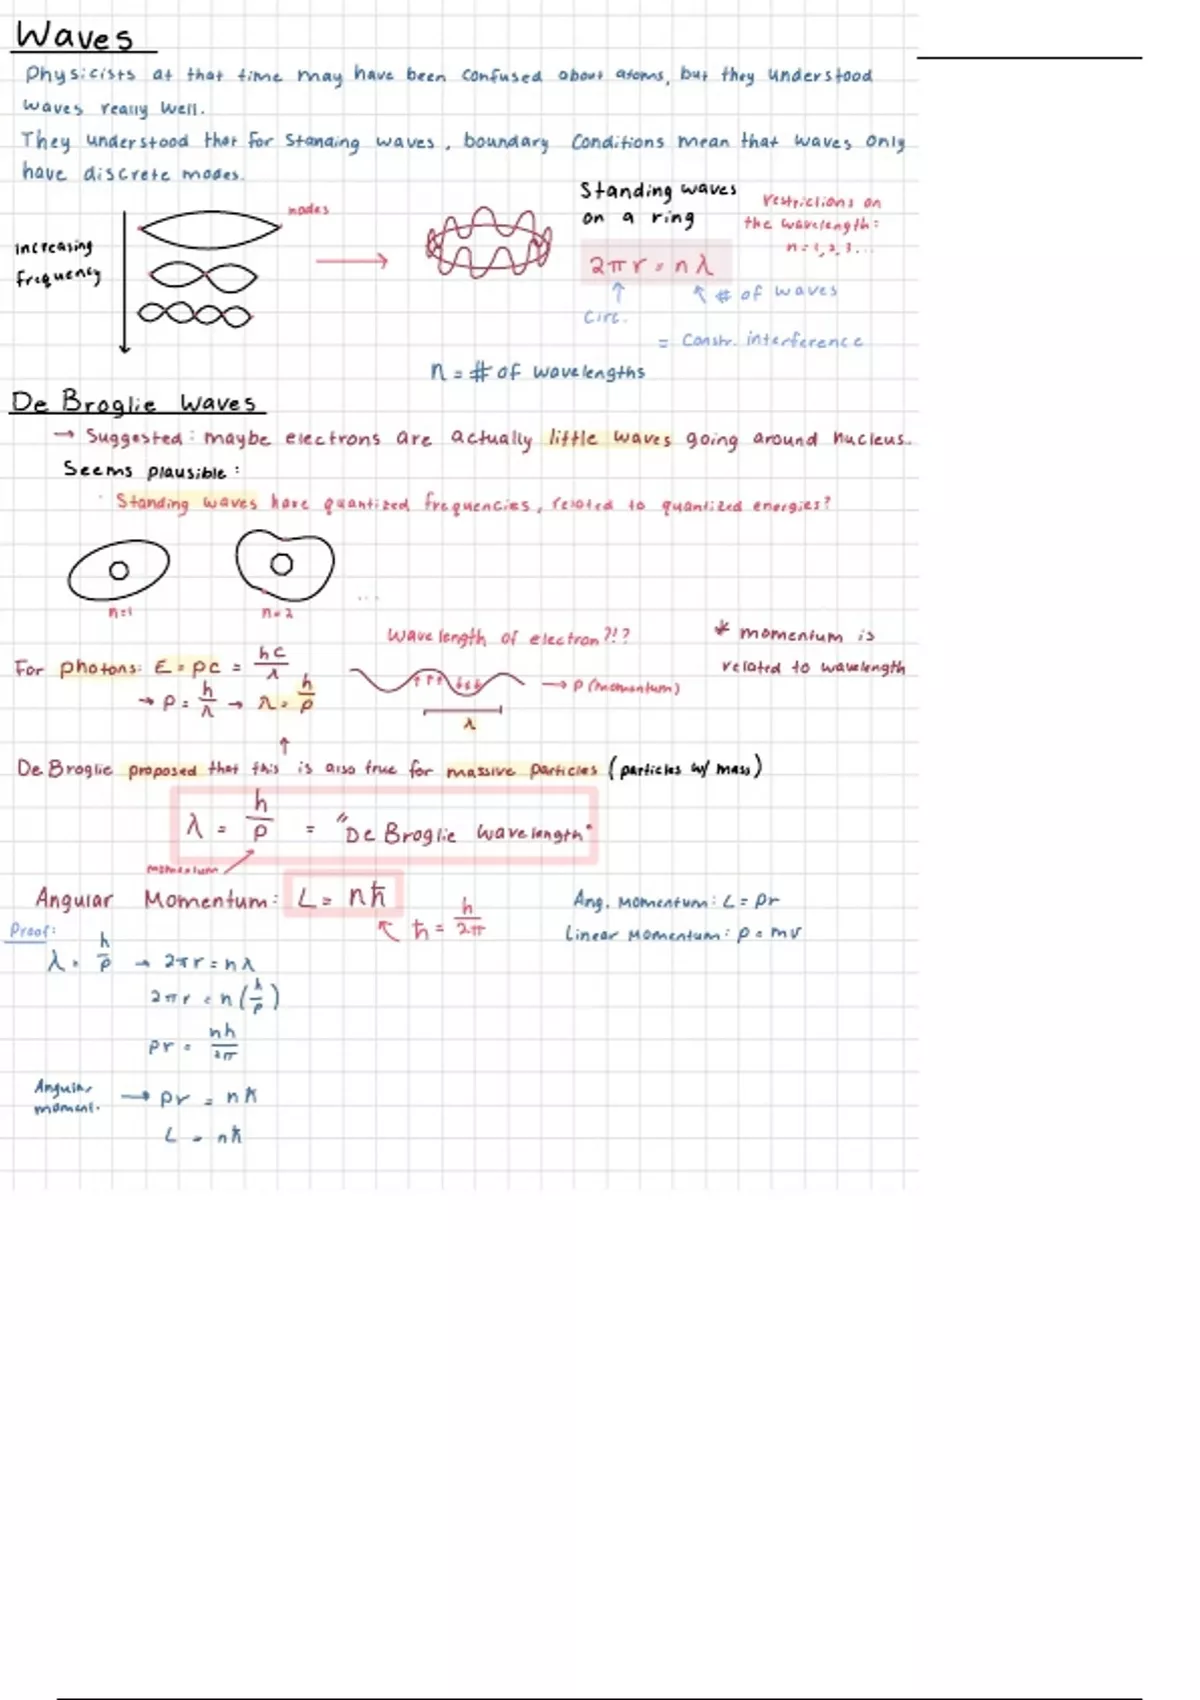 Waves
Physicists at that time may have been confused about atoms, but they understood
waves really well.
They understood that for standing waves, boundary conditions mean that waves only
have discrete modes.
increasing
frequency
nodes
Standing waves
on a ring
restrictions on
the wavelength:
n = 1, 2, 3...
2πr = nλ
↑ circ.
↖ # of waves
= constr. interference
n = # of wavelengths
De Broglie Waves
→ Suggested: maybe electrons are actually little waves going around nucleus.
Seems plausible:
· Standing waves have quantized frequencies, related to quantized energies?
n=1
n=2
...
Wavelength of electron?!?
* momentum is
related to wavelength
For photons: E = pc = hc/λ
→ p = h/λ → λ = h/p
→ p (momentum)
λ
↑
De Broglie proposed that this is also true for massive particles (particles w/ mass)
λ = h/p = "De Broglie wavelength"
momentum
Angular Momentum: L = nħ
↖ ħ = h/2π
Ang. momentum: L = pr
Linear momentum: p = mv
Proof:
λ = h/p → 2πr = nλ
2πr = n(h/p)
pr = nh/2π
Angular
moment.
→ pr = nħ
L = nħ